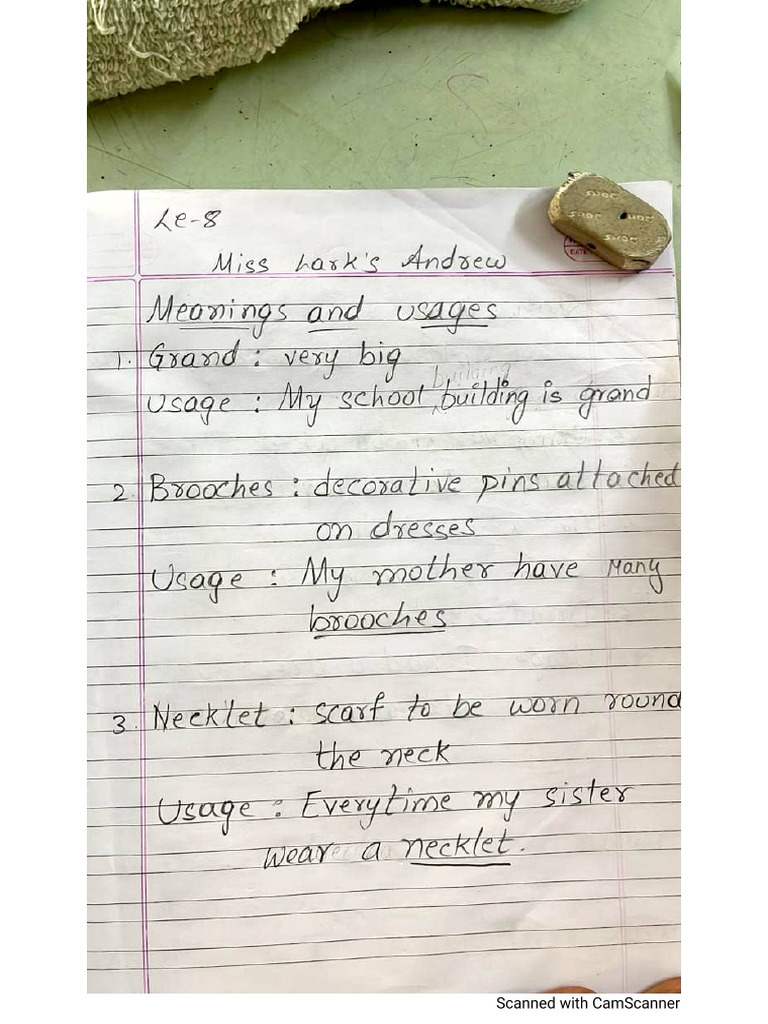 Le-8
Miss Lark's Andrew
Meanings and usages
1. Grand : very big
building
Usage : My school building is grand
2. Brooches : decorative pins attached
on dresses
Usage : My mother have Many
brooches
3. Necklet : scarf to be worn round
the neck
Usage : Everytime my sister
wear a necklet.
Scanned with CamScanner